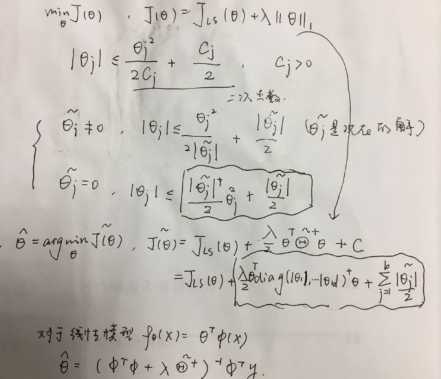 min_θ J(θ) , J(θ) = J_LS(θ) + λ‖θ‖₁
|θⱼ| ≤ θⱼ²/(2Cⱼ) + Cⱼ/2 , Cⱼ>0
二次函数.
{ θ̃ⱼ ≠ 0 , |θⱼ| ≤ θⱼ²/(2|θ̃ⱼ|) + |θ̃ⱼ|/2 (θ̃ⱼ 是现在的解)
θ̃ⱼ = 0 , |θⱼ| ≤ |θ̃ⱼ|†/2 θⱼ² + |θ̃ⱼ|/2
θ̂ = argmin_θ J̃(θ) , J̃(θ) = J_LS(θ) + λ/2 θᵀ Θ̃⁺ θ + C
= J_LS(θ) + λ/2 θᵀ diag(|θ₁|, … |θ_b|)⁺ θ + Σ_{j=1}^{b} |θ̃ⱼ|/2
对于线性模型 f_θ(x) = θᵀφ(x)
θ̂ = (ΦᵀΦ + λ Θ̃⁺)⁻¹ Φᵀy.